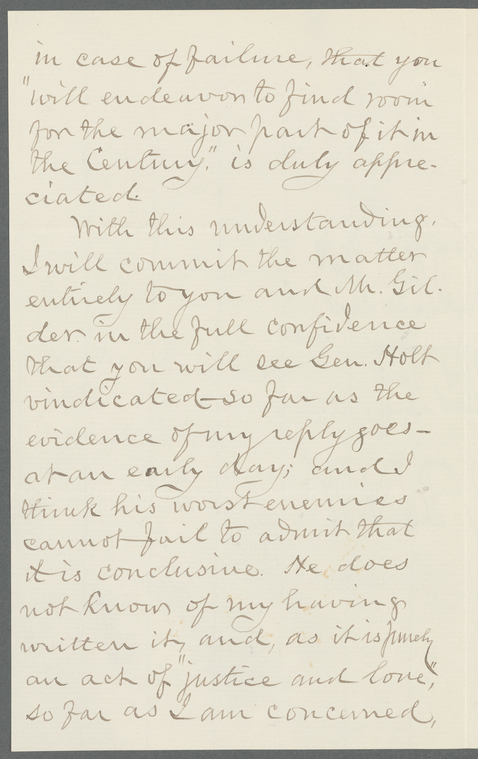 in case of failure, that you
"will endeavor to find room
for the major part of it in
the Century," is duly appre-
ciated.
With this understanding,
I will commit the matter
entirely to you and Mr. Gil-
der in the full confidence
that you will see Gen. Holt
vindicated—so far as the
evidence of my reply goes—
at an early day; and I
think his worst enemies
cannot fail to admit that
it is conclusive. He does
not know of my having
written it, and, as it is purely
an act of "justice and love,"
so far as I am concerned,